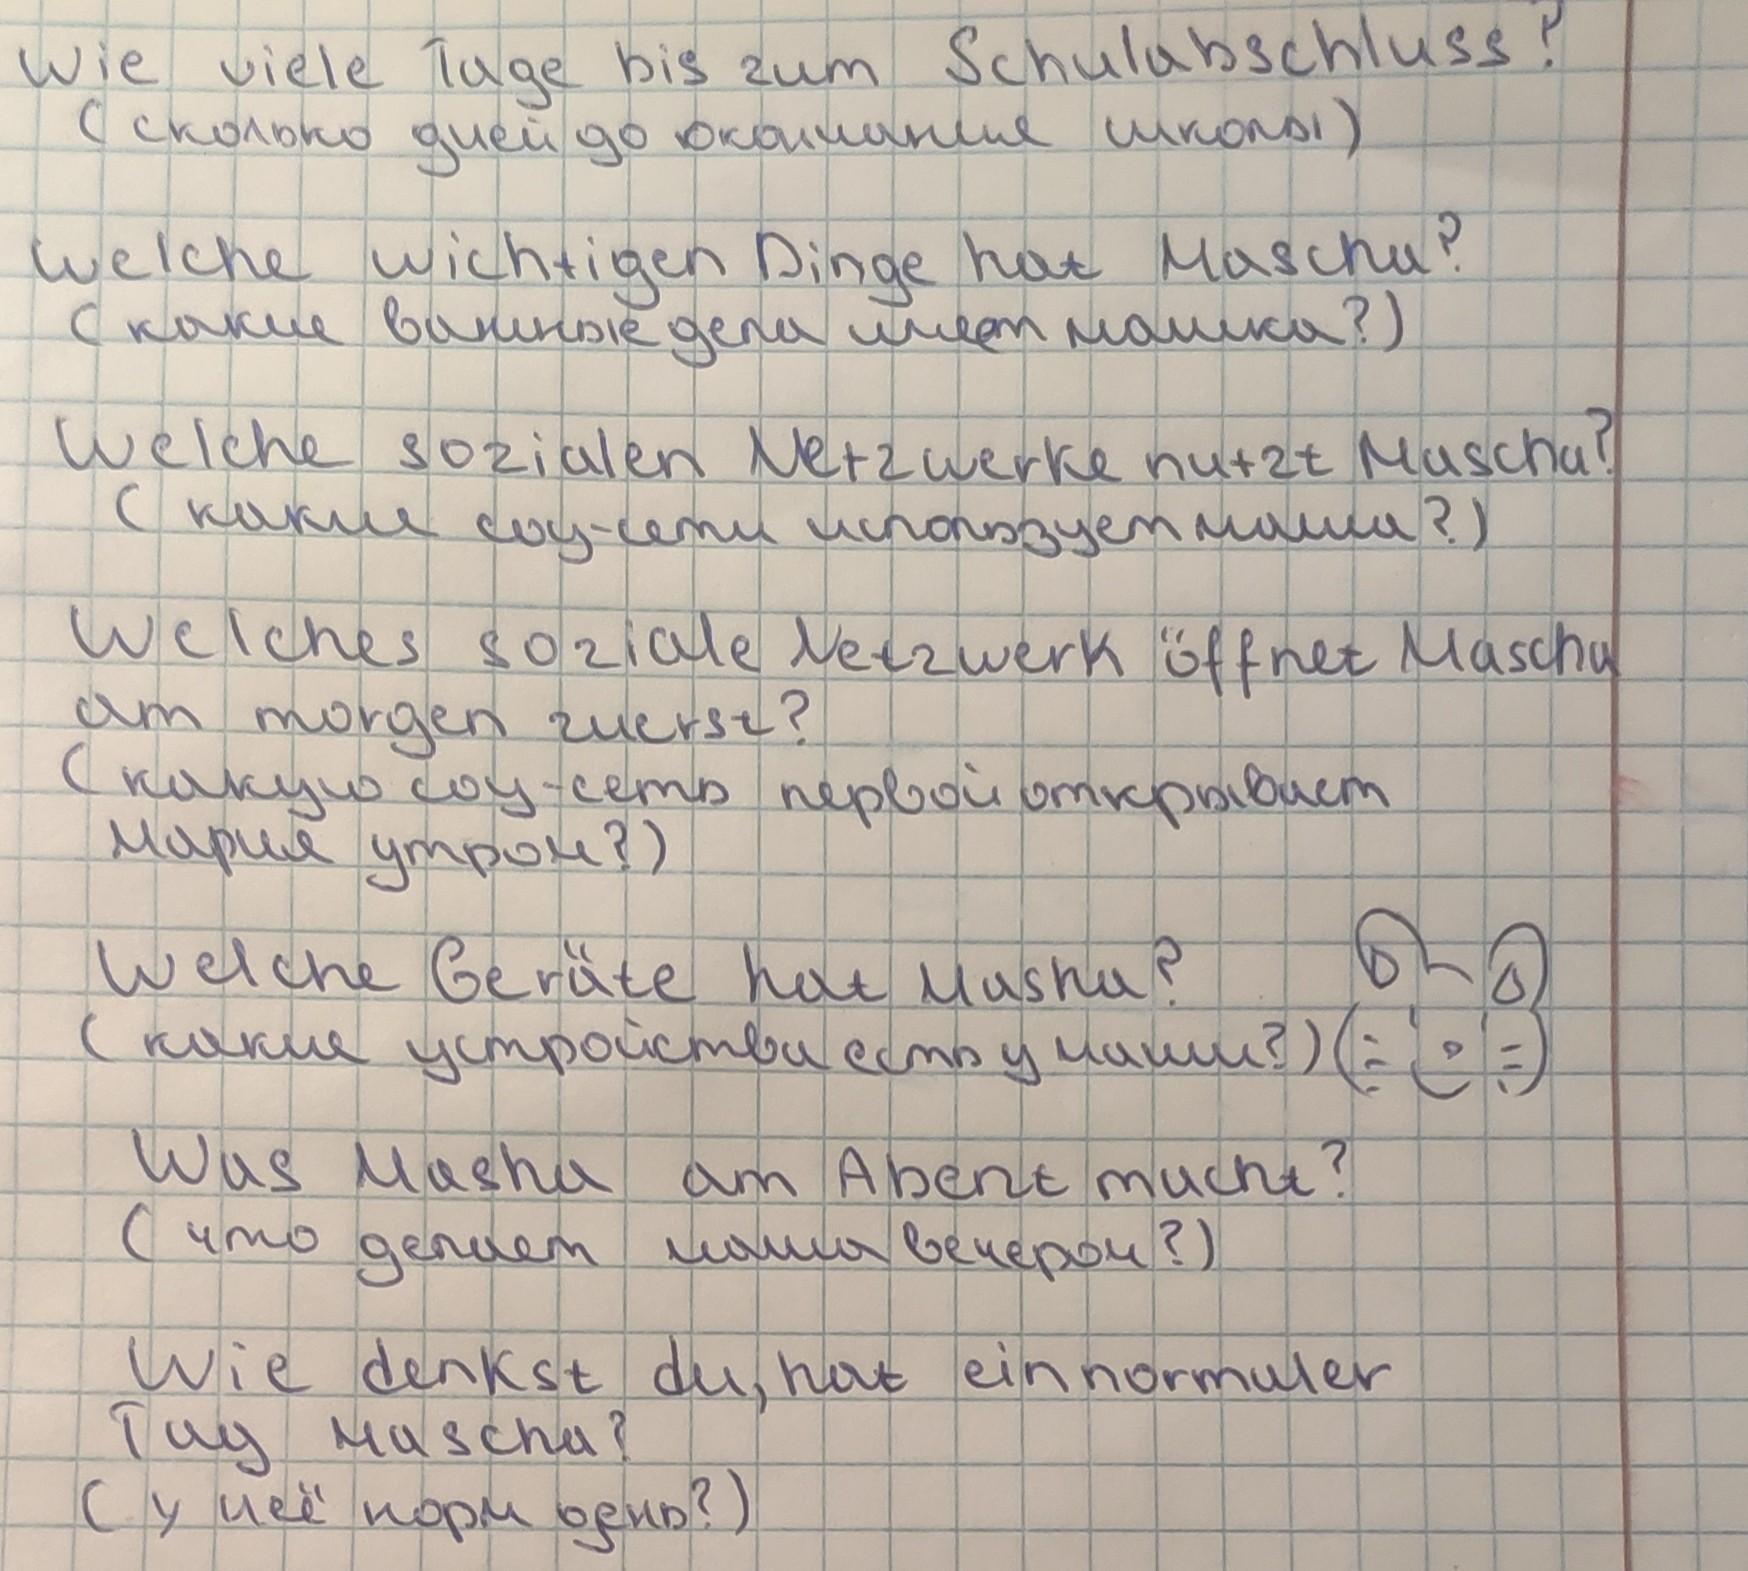 Wie viele Tage bis zum Schulabschluss?
(сколько дней до окончания школы)
Welche wichtigen Dinge hat Mascha?
(какие важные дела имеет машка?)
Welche sozialen Netzwerke nutzt Mascha?
(какие соц-сети использует маша?)
Welches soziale Netzwerk öffnet Mascha
am morgen zuerst?
(какую соц-сеть первой открывает
Мария утром?)
Welche Geräte hat Masha?
(какие устройства есть у маши?)
Was Masha am Abent macht?
(что делает маша вечером?)
Wie denkst du, hat ein normaler
Tag Mascha?
(у неё норм день?)